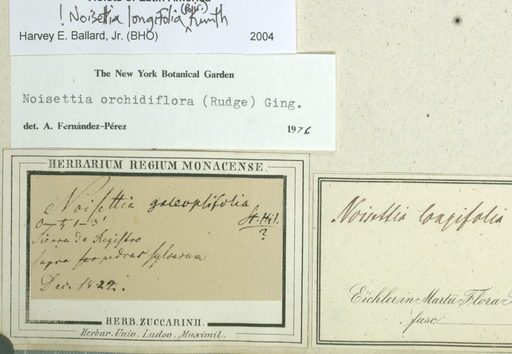 ! Noisettia longifolia (Poir.) Kunth
Harvey E. Ballard, Jr. (BHO) 2004
The New York Botanical Garden
Noisettia orchidiflora (Rudge) Ging.
det. A. Fernández-Pérez 1976
HERBARIUM REGIUM MONACENSE.
Noisettia galeopsifolia
St. Hil.
?
Sierra de Registro
supra
Dec. 1822.
HERB. ZUCCARINII.
Herbar. Univ. Ludov. Maximil.
Noisettia longifolia
Eichler in Martii Flora
fasc